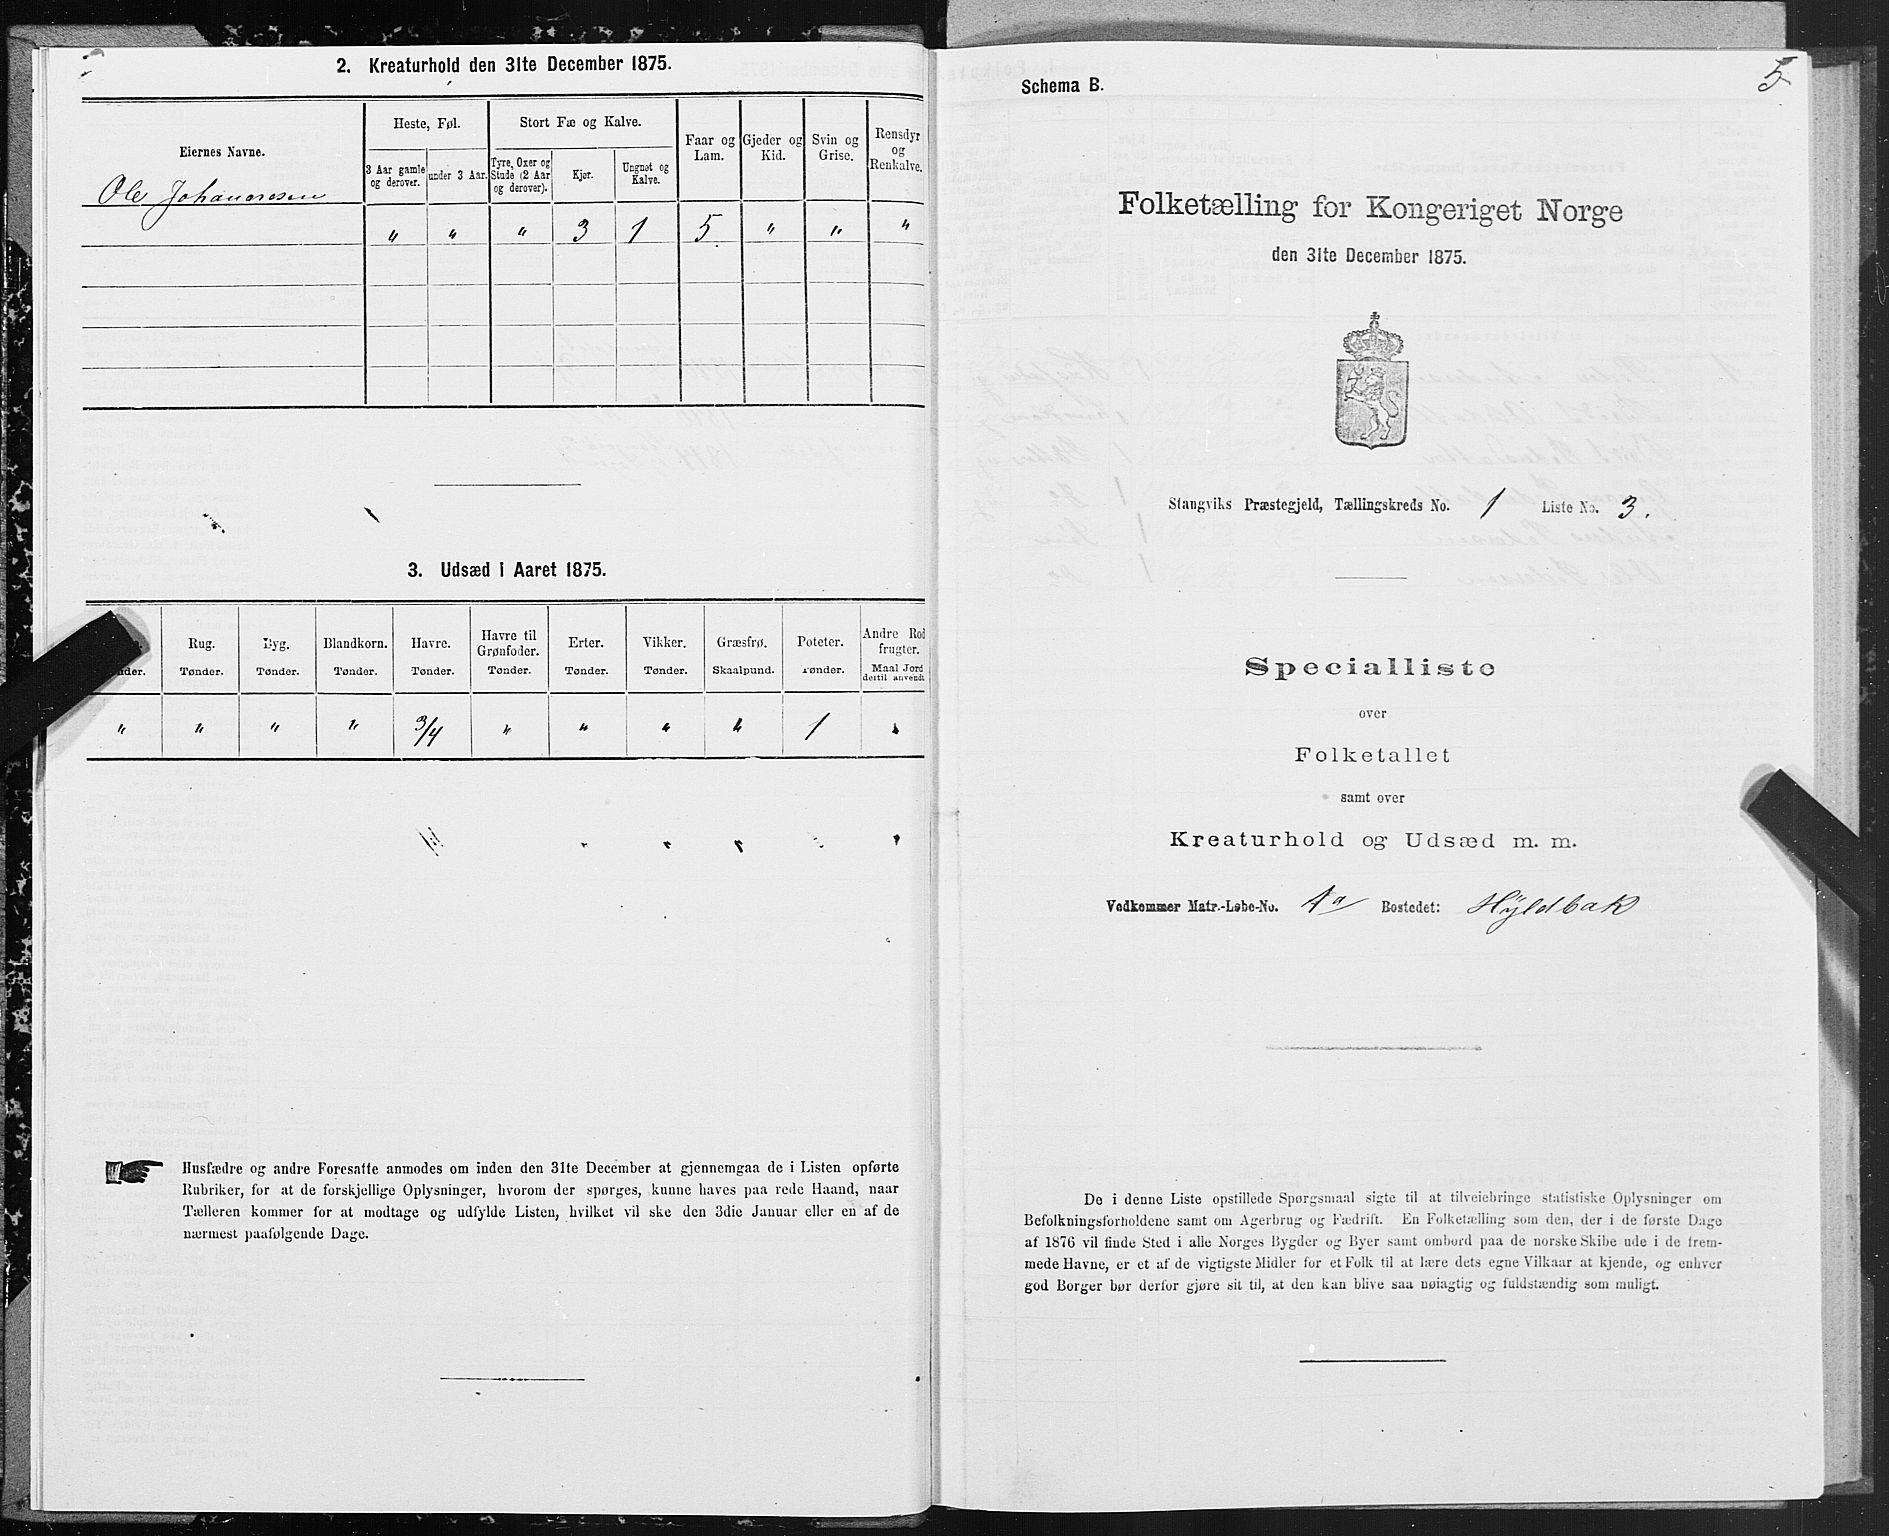 2. Kreaturhold den 31te December 1875.
Eiernes Navne.
Heste, Føl.
Stort Fæ og Kalve.
Faar og Lam.
Gjeder og Kid.
Svin og Grise.
Rensdyr og Renkalve.
3 Aar gamle og derover.
under 3 Aar.
Tyre, Oxer og Stude (2 Aar og derover).
Kjør.
Ungnøt og Kalve.
Ole Johannesen
" " " 3 1 5 " " "
3. Udsæd i Aaret 1875.
Rug. Byg. Blandkorn. Havre. Havre til Grønfoder. Erter. Vikker. Græsfrø. Poteter. Andre Rod frugter.
Tønder. Tønder. Tønder. Tønder. Tønder. Tønder. Tønder. Skaalpund. Tønder. Maal Jord dertil anvendt
" " " " 3/4 " " " " 1 "
Husfædre og andre Foresatte anmodes om inden den 31te December at gjennemgaa de i Listen opførte
Rubriker, for at de forskjellige Oplysninger, hvorom der spørges, kunne haves paa rede Haand, naar
Tælleren kommer for at modtage og udfylde Listen, hvilket vil ske den 3die Januar eller en af de
nærmest paafølgende Dage.
5
Schema B.
Folketælling for Kongeriget Norge
den 31te December 1875.
Stangviks Præstegjeld, Tællingskreds No. 1 Liste No. 3.
Specialliste
over
Folketallet
samt over
Kreaturhold og Udsæd m. m.
Vedkommer Matr.-Løbe-No. 1a Bostedet: Hyldbak
De i denne Liste opstillede Spørgsmaal sigte til at tilveiebringe statistiske Oplysninger om
Befolkningsforholdene samt om Agerbrug og Fædrift. En Folketælling som den, der i de første Dage
af 1876 vil finde Sted i alle Norges Bygder og Byer samt ombord paa de norske Skibe ude i de frem-
mede Havne, er et af de vigtigste Midler for et Folk til at lære dets egne Vilkaar at kjende, og enhver
god Borger bør derfor gjøre sit til, at den kan blive saa nøiagtig og fuldstændig som muligt.